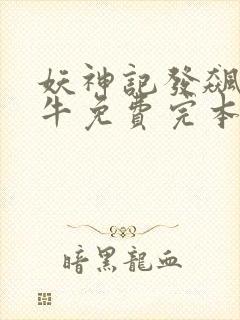 妖神記發飆
牛免費完本
暗黑龍血